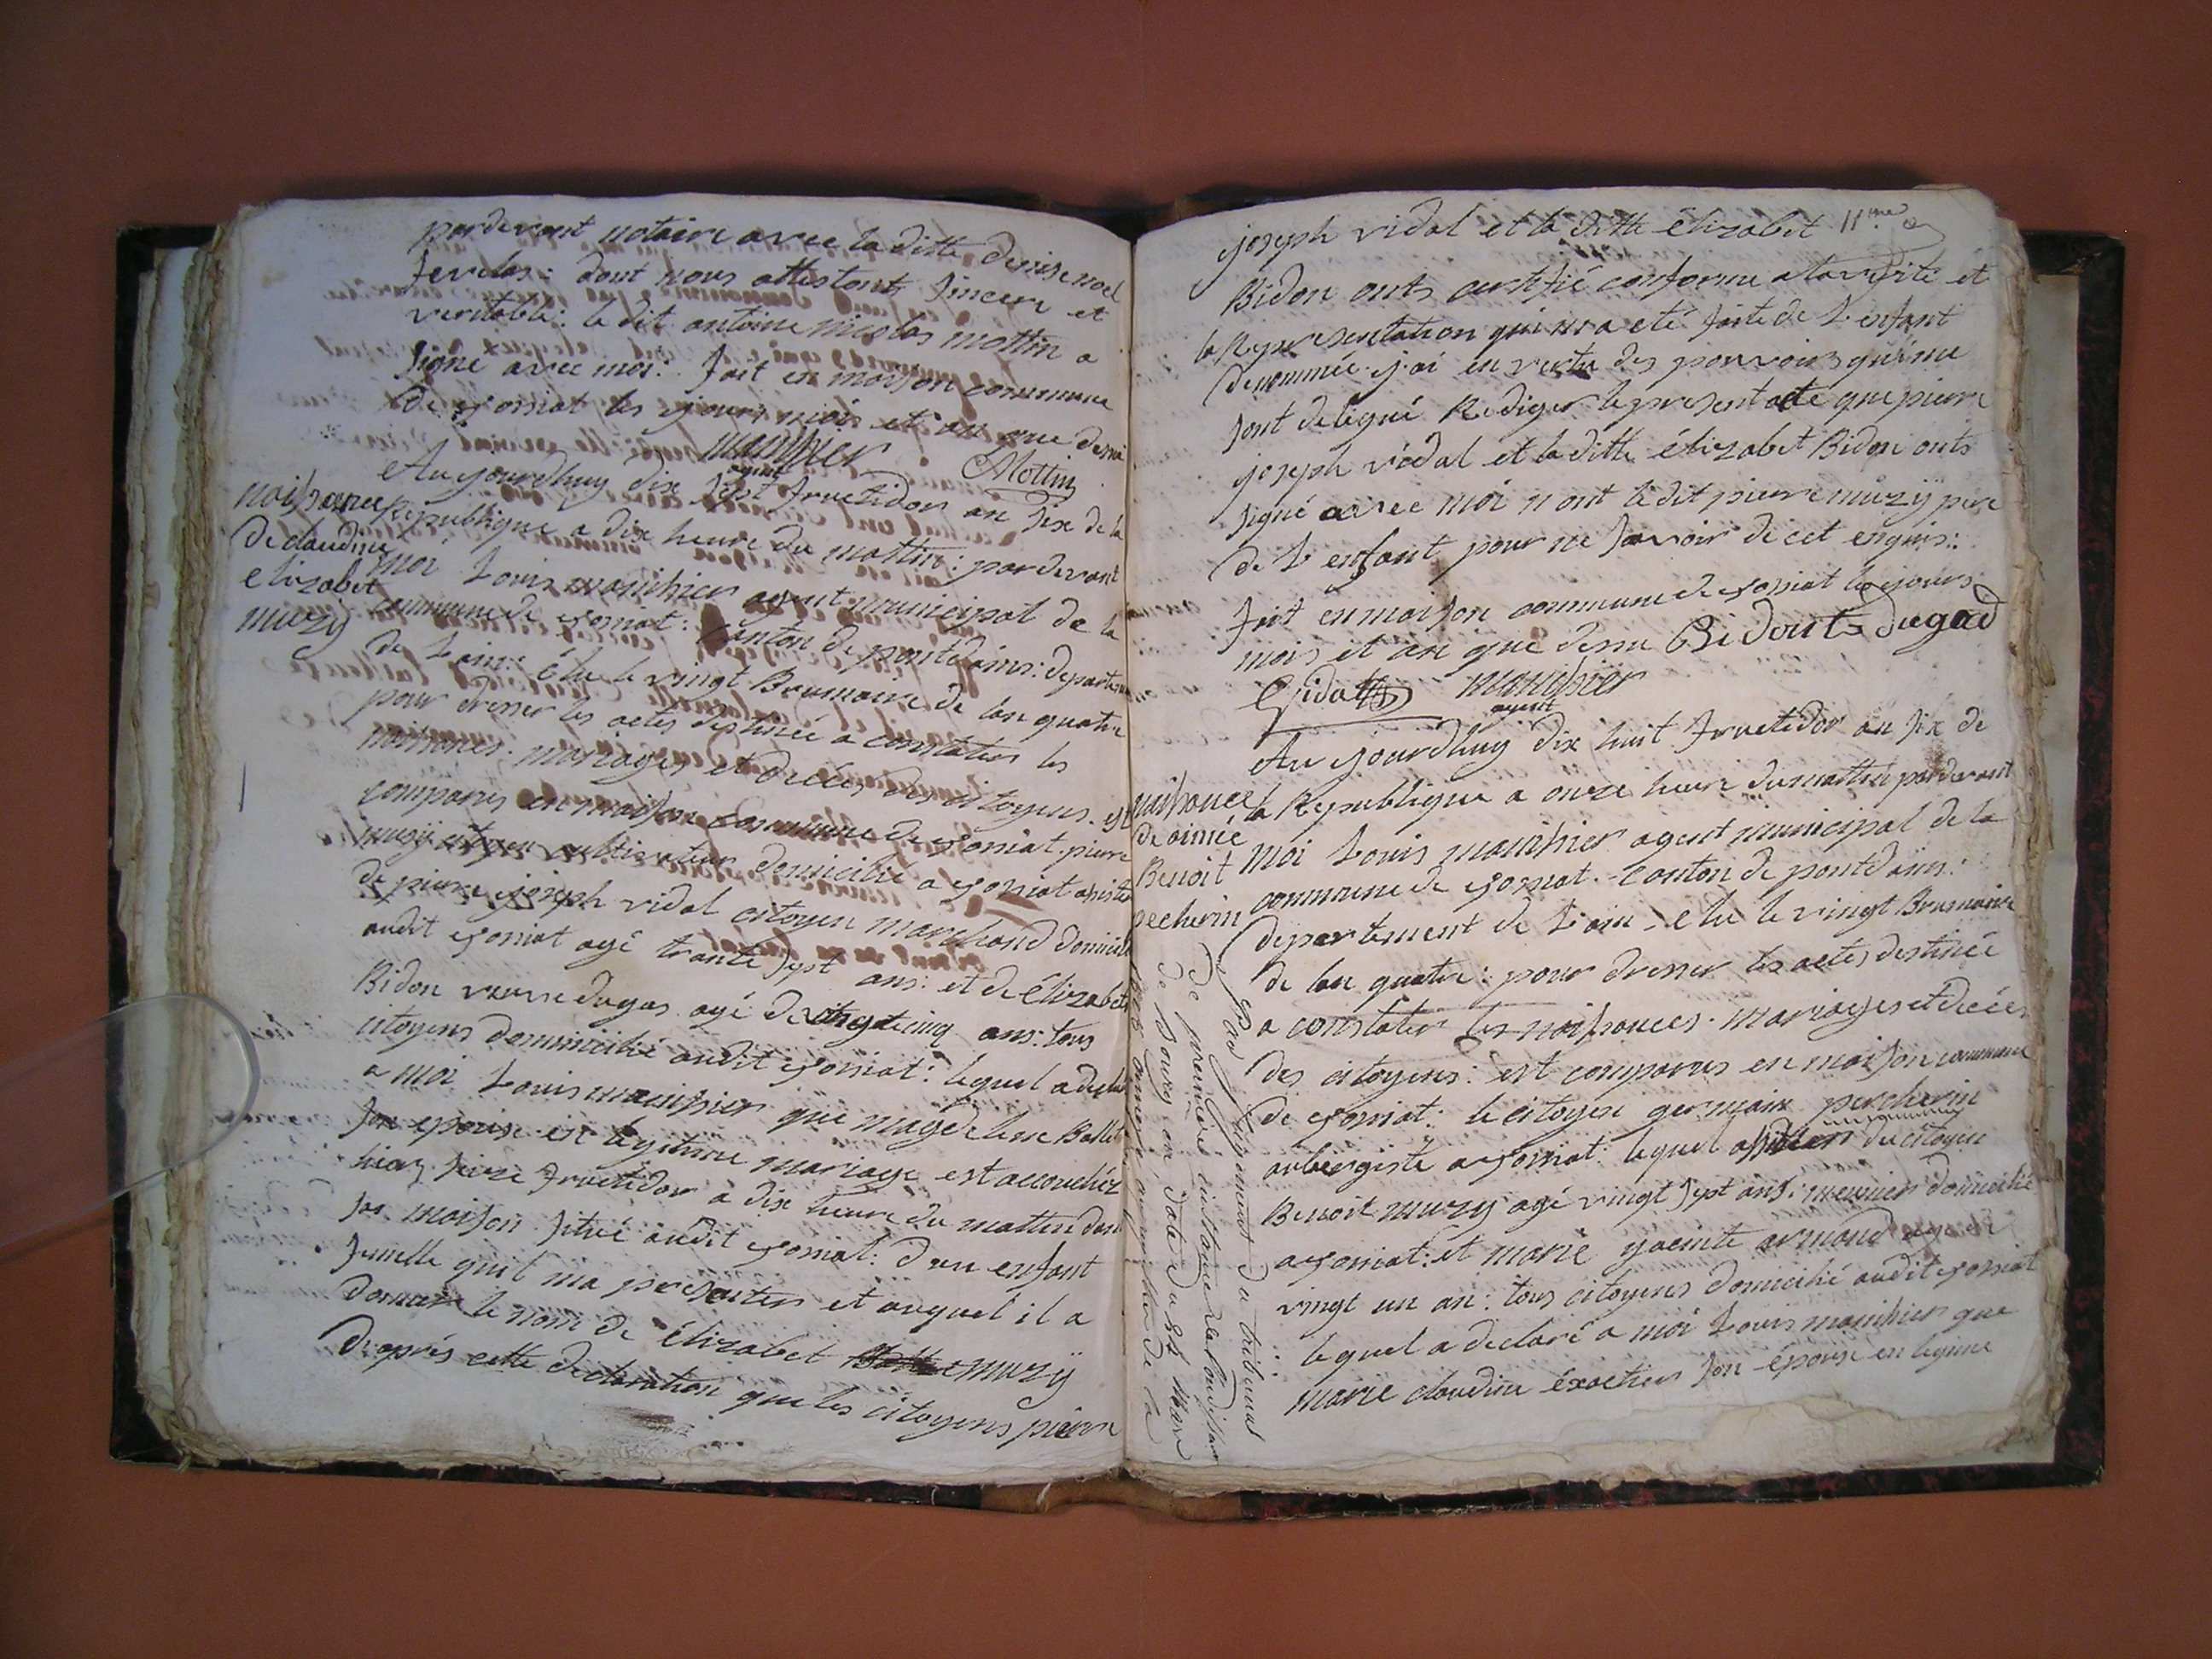 pardevant notaire avec la ditte denise noel
Servelas: dont nous attestont sincere et
veritable: le dit antoine nicolas mottin a
signé avec moi: fait en maison commune
de josniat les jours mois et an que dessu
manihier Mottin
agent
naissance
de claudine
elizabet
muzÿ
Aujourdhuy dix sept fructidor an six de la
Republique a dix heure du mattin: pardevant
moi Louis manihier agent municipal de la
commune de josniat: canton de pontdains: departeme
de Lain: élu le vingt Brumaire de lan quatre
pour dresser les actes destinée a constater les
naissances. mariages et décés des citoyens. est
comparus en maison commune de josniat. pierre
muzÿ citoyen cultivateur domicilié a josniat assisté
de pierre joseph vidal citoyen marchand domicilié
audit josniat agé trante sept ans: et de élizabet
Bidon veuve dugas agé de vingt cinq ans: tous
citoyens domicilié audit josniat: lequel a declaré
a moi Louis manihier que magdelene Ballet
son epouse en legitime mariage est accouchéz
hier seize fructidor à dix heure du mattin dans
sa maison situé audit josniat: d'un enfant
femelle quil ma presenter et auquel il a
donner le nom de élizabet muzÿ
d'aprés cette declaration que les citoyens pierre
11me
joseph vidal et la ditte élizabet
Bidon onts certifié conforme a la verité et
la Representation qui m a eté faite de L enfant
denommée. j. ai en vertu des pouvoirs qui me
sont delegué Rediger le present acte que pierre
joseph vidal et la ditte élizabet Bidon onts
signé avec moi n ont le dit pierre muzÿ pere
de L enfant pour ne savoir de cet enquis:
fait en maison commune de josniat les jours
mois et an que dessu Bidont dugad
manihier
agent
naissance
de aimée
Benoit
pecherin
Au jourdhuy dix huit fructidor an six de
la Republique a onze heure du mattin pardevant
moi Louis manihier agent municipal de la
commune de josniat. canton de pontdains:
departement de Lain. élu le vingt Brumaire
de lan quatre: pour dresser les actes destinée
a constater les naissances. mariages et décés
des citoyens: est comparus en maison commune
de josniat: le citoyen germain percherin
aubergiste a josniat: lequel assister du citoyen
Benoit muzy agé vingt sept ans: meunier domicilié
a josniat: et marie yacinte armand agé de
vingt un an: tous citoyens domicilié audit josniat
lequel a declaré a moi Louis manihier que
marie claudine son épouse en legitime
par jugement du tribunal
de première instance
de Bourg en date du